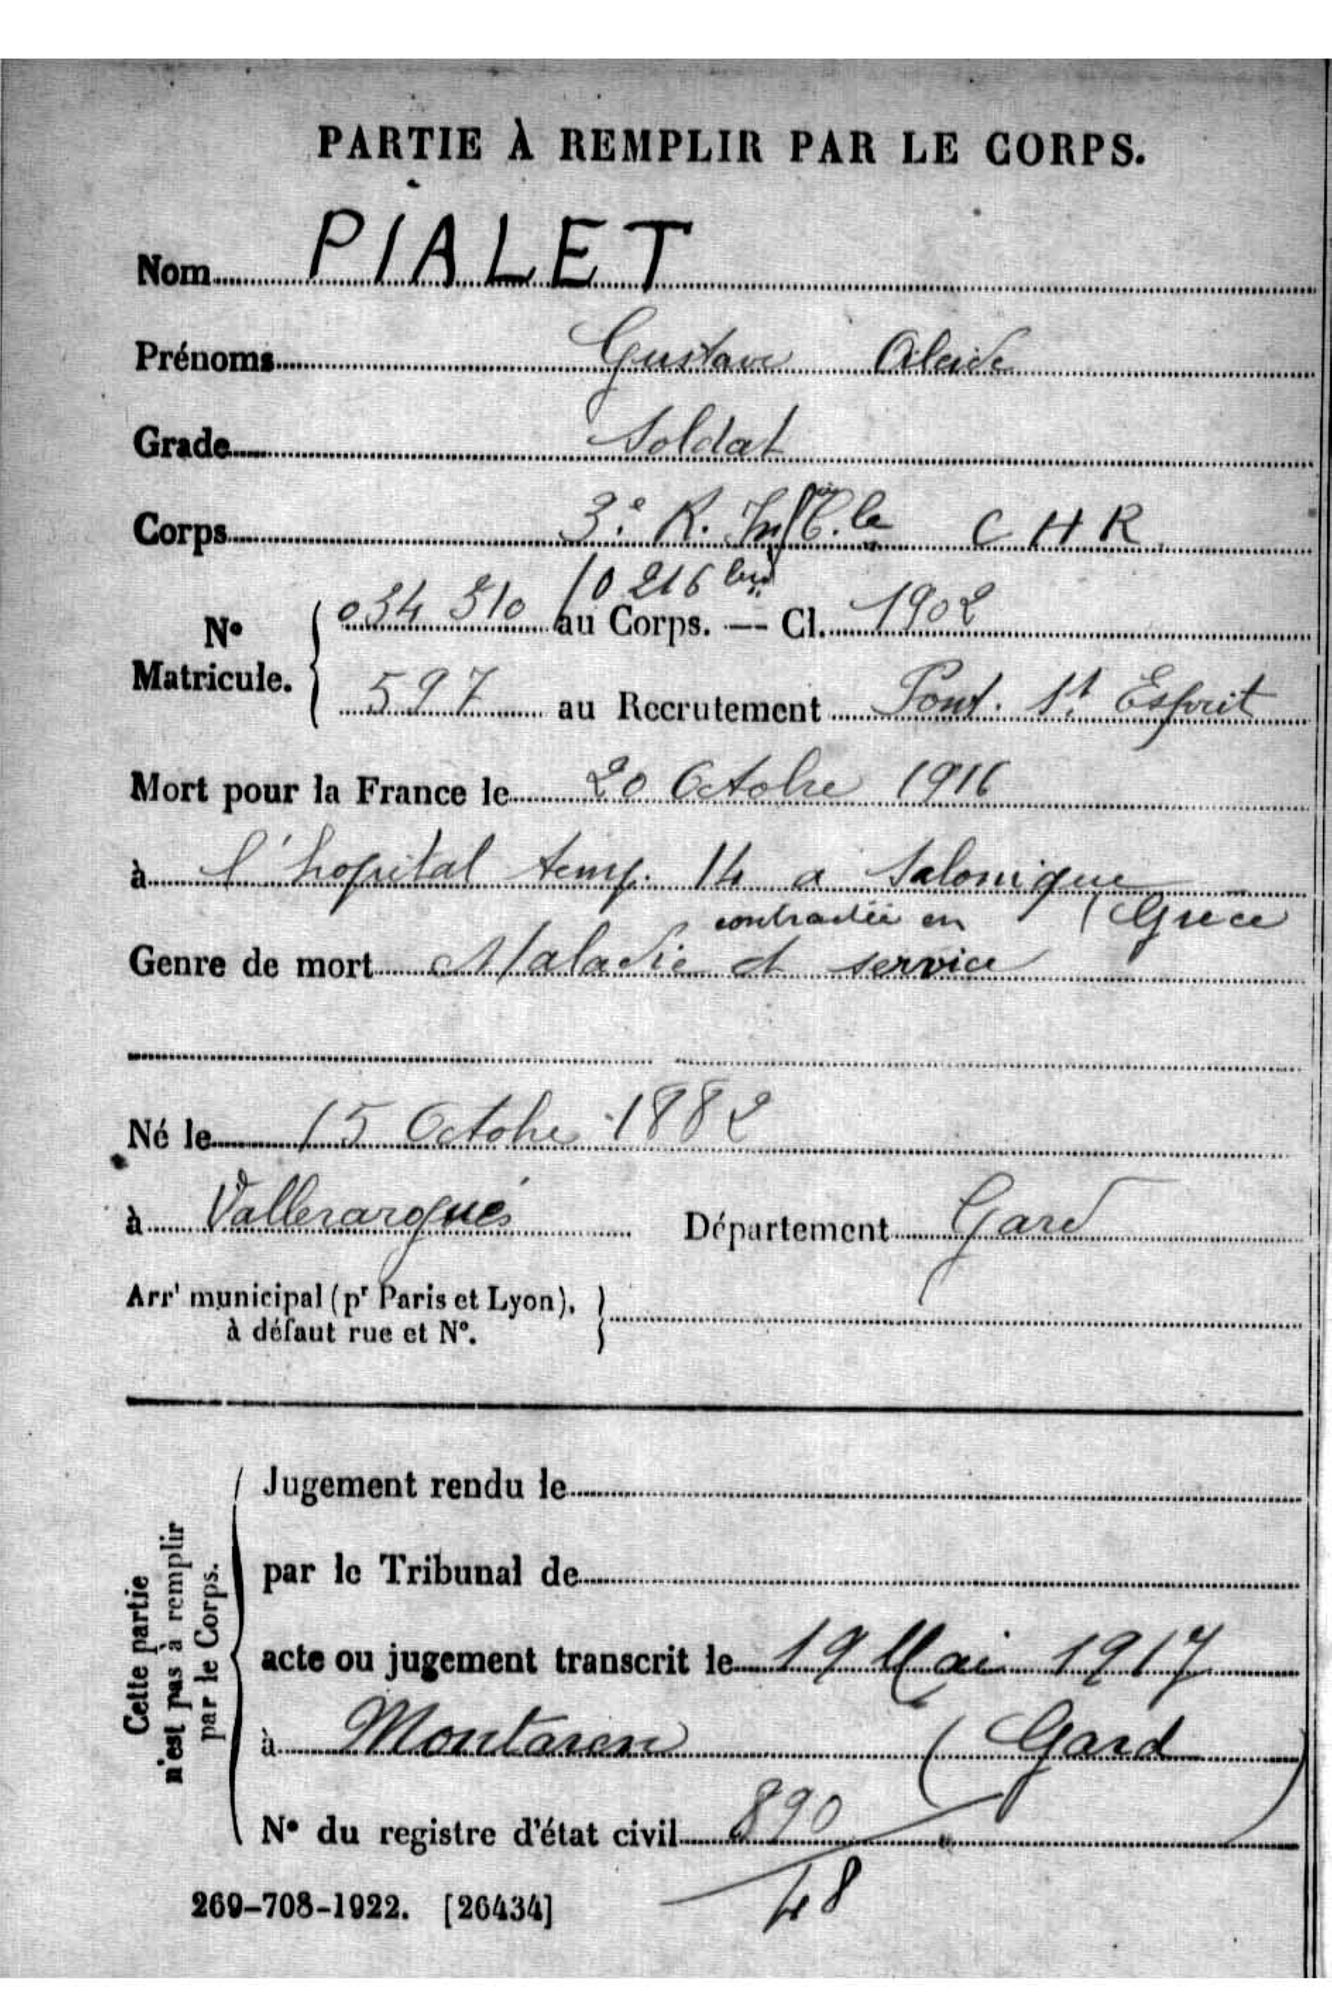 PARTIE À REMPLIR PAR LE CORPS.
Nom PIALET
Prénoms Gustave Alcide
Grade Soldat
Corps 3e R. Inf C.le C H R
10 216 bis
N° Matricule. 034 510 au Corps. — Cl. 1902
597 au Recrutement Pont. St Esprit
Mort pour la France le 20 Octobre 1916
à l'hopital temp. 14 a Salonique
(Grèce
contractée en
Genre de mort Maladie d service
Né le 15 Octobre 1882
à Vallerargues Département Gard
Arrt municipal (pr Paris et Lyon),
à défaut rue et N°.
Cette partie
n'est pas à remplir
par le Corps.
Jugement rendu le
par le Tribunal de
acte ou jugement transcrit le 19 Mai 1917
à Montaren (Gard)
N° du registre d'état civil 890/48
269-708-1922. [26434]